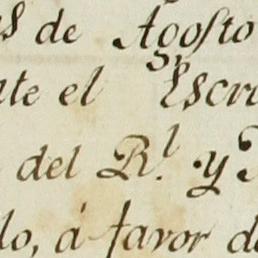 s de Agosto
nte el Escri
del R.l y
do, á favor de